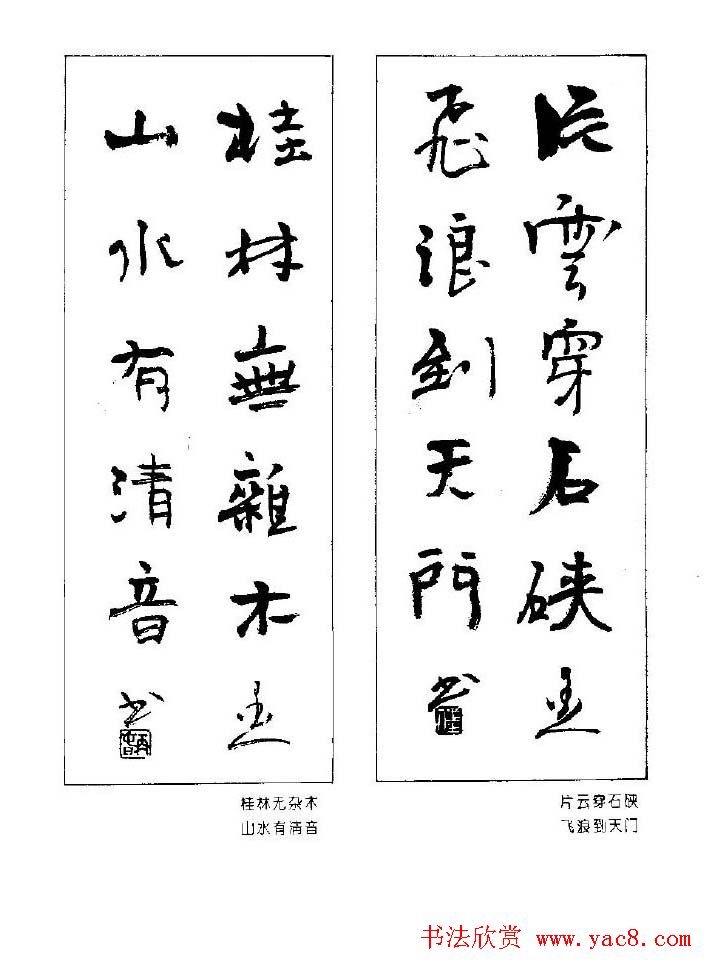 雲穿石硖
飛浪到天門 書
桂林無雜木
山水有清音 書
片云穿石硖
飞浪到天门
桂林无杂木
山水有清音
书法欣赏 www.yac8.com